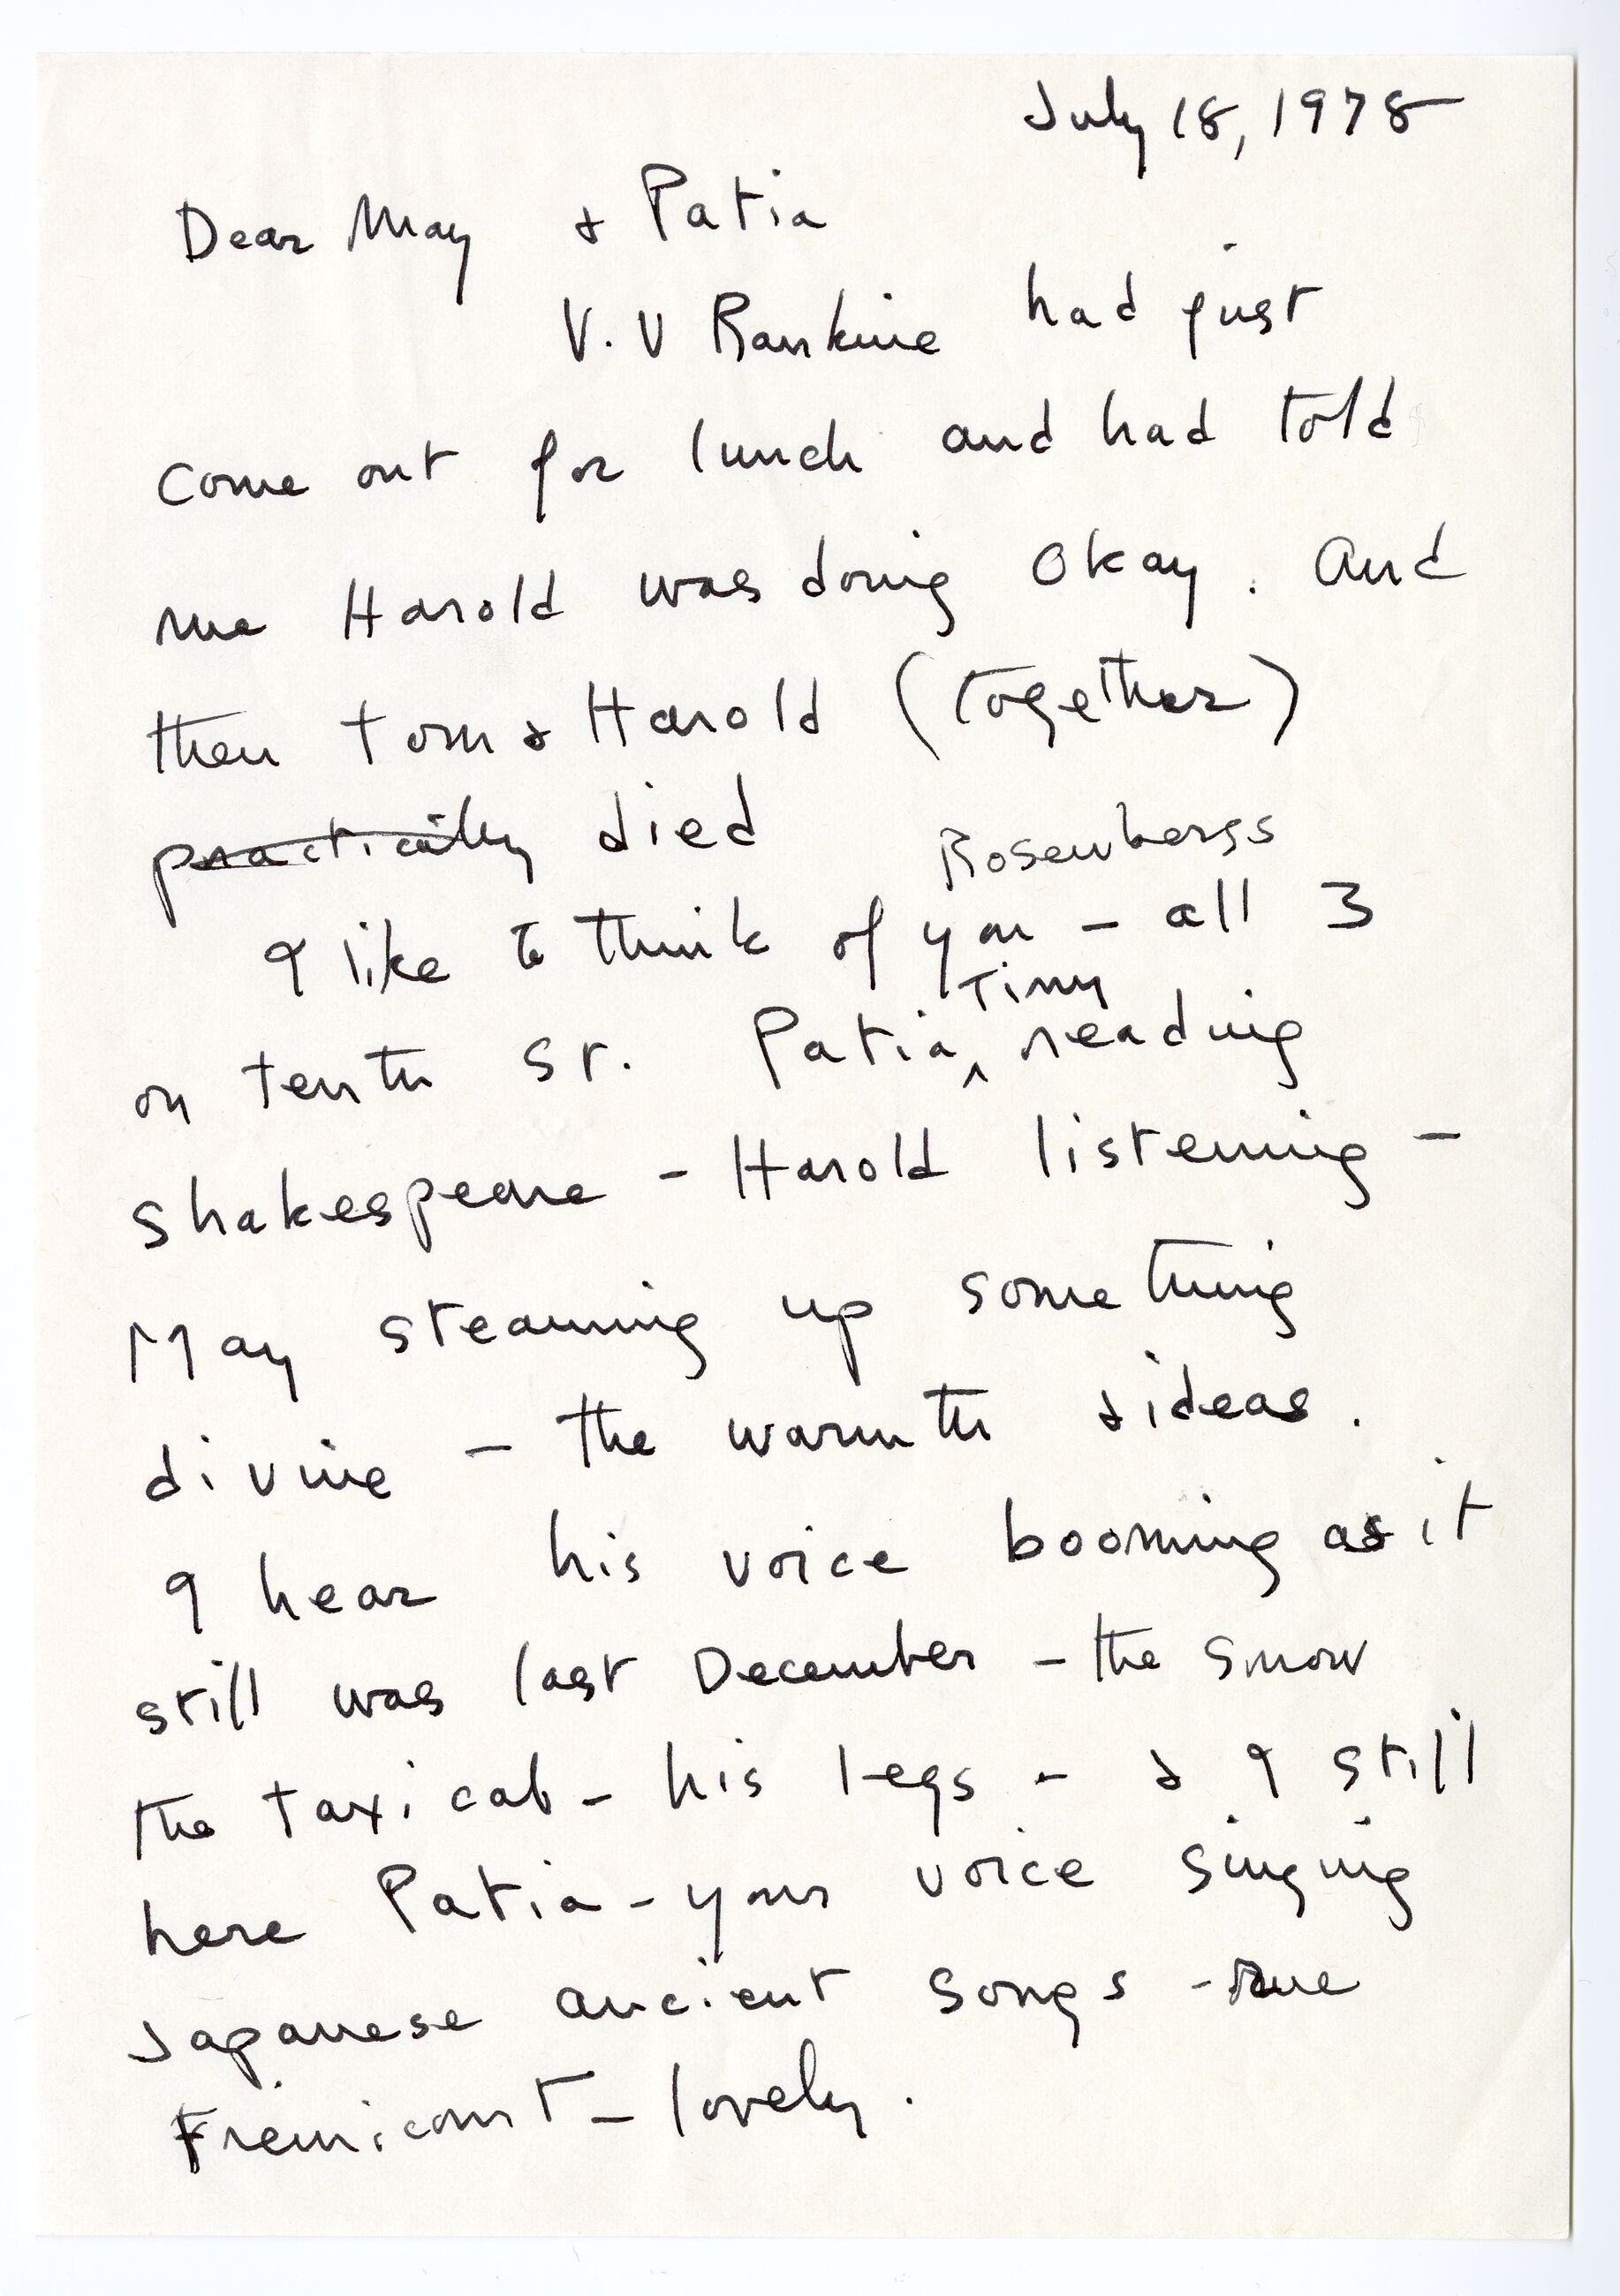 July 18, 1978
Dear May & Patia
V.V Rankine had just
come out for lunch and had told
me Harold was doing okay. And
then Tom & Harold (together)
practically died
Rosenbergs
I like to think of you - all 3
on tenth St. Patia ^ Tiny reading
Shakespeare - Harold listening -
May steaming up something
divine - the warmth & ideas.
I hear his voice booming as it
still was last December - the snow
the taxi cab - his legs - & I still
here Patia - your voice singing
Japanese ancient songs - Rue
Fremicourt - lovely.